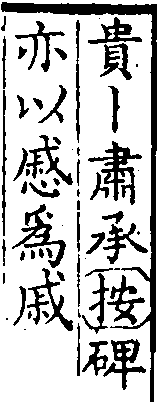 貴丨肅承按碑
亦以慼爲戚